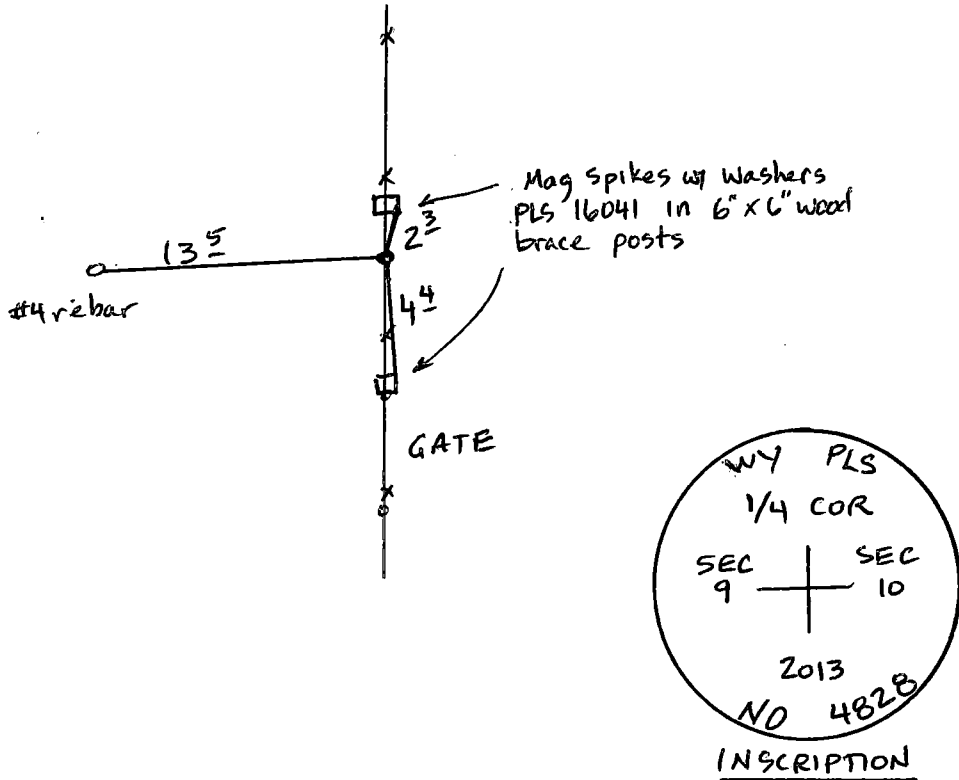 Mag spikes w/ washers
PLS 16041 in 6" x 6" wood
brace posts
13 5
2 3
#4 rebar
4 4
GATE
WY PLS
1/4 COR
SEC SEC
9 10
2013
NO 4828
INSCRIPTION